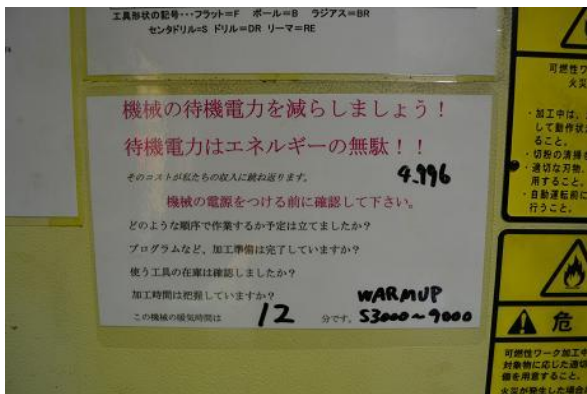 工具形状の記号･･･フラット=F ボール=B ラジアス=BR
センタドリル=S ドリル=DR リーマ=RE
機械の待機電力を減らしましょう！
待機電力はエネルギーの無駄！！
そのコストが私たちの収入に跳ね返ります。
4.996
機械の電源をつける前に確認して下さい。
どのような順序で作業するか予定は立てましたか？
プログラムなど、加工準備は完了していますか？
使う工具の在庫は確認しましたか？
加工時間は把握していますか？
WARMUP
この機械の暖気時間は 12 分です。 S3000～9000
可燃性ワ
火災
・加工中は、
して動作状
ること。
・切粉の清掃
・適切な刃物、
用すること。
・自動運転前に
行うこと。
危
可燃性ワーク加工中
対象物に応じた適切
備を用意すること。
火災が発生した場合